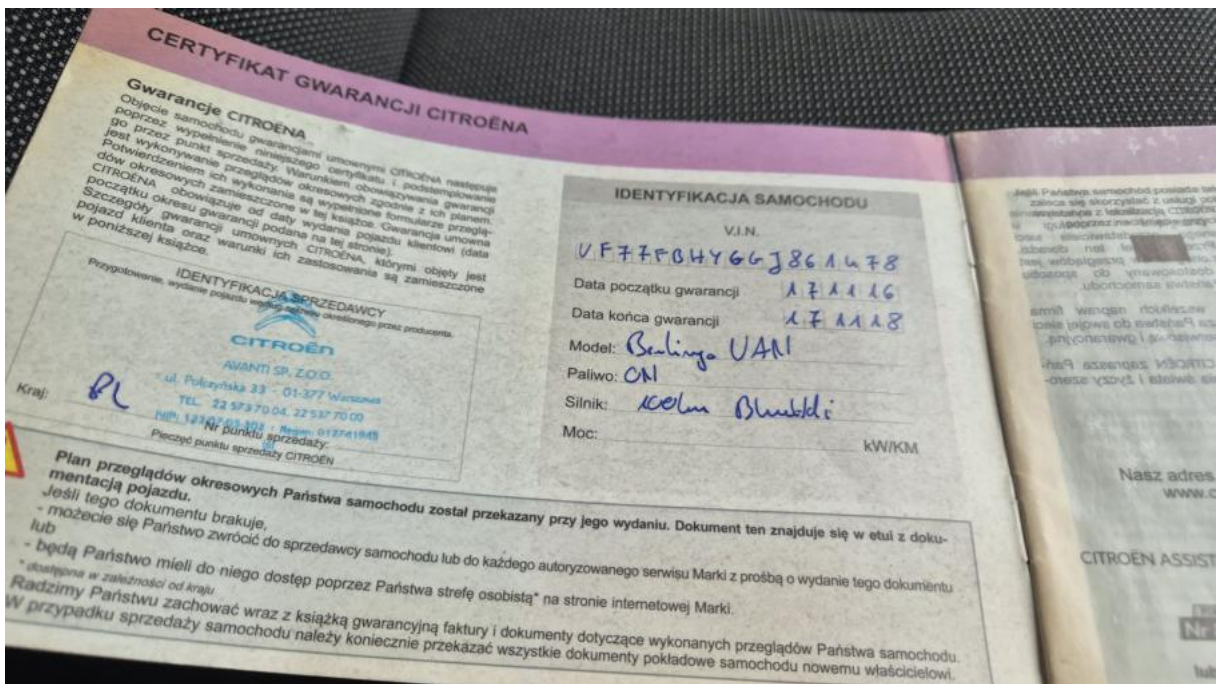 CERTYFIKAT GWARANCJI CITROËNA
Gwarancje CITROËNA
Objęcie samochodu gwarancjami umownymi CITROËNA następuje
poprzez wypełnienie niniejszego certyfikatu i podstemplowanie
go przez punkt sprzedaży. Warunkiem obowiązywania gwarancji
jest wykonywanie przeglądów okresowych zgodnie z ich planem.
Potwierdzeniem ich wykonania są wypełnione formularze przeglą-
dów okresowych zamieszczone w tej książce. Gwarancja umowna
CITROËNA obowiązuje od daty wydania pojazdu klientowi (data
początku okresu gwarancji podana na tej stronie).
Szczegóły gwarancji umownych CITROËNA, którymi objęty jest
pojazd klienta oraz warunki ich zastosowania są zamieszczone
w poniższej książce.
IDENTYFIKACJA SPRZEDAWCY
Przygotowanie, wydanie pojazdu według określonego przez producenta.
CITROËN
AVANTI SP. Z O.O.
ul. Połczyńska 33 - 01-377 Warszawa
TEL. 22 573 70 04, 22 537 70 00
Kraj: PL
Nr punktu sprzedaży:
Pieczęć punktu sprzedaży CITROËN
IDENTYFIKACJA SAMOCHODU
V.I.N.
VF77FBHY6GJ861478
Data początku gwarancji 171116
Data końca gwarancji 171118
Model: Berlingo VAN
Paliwo: ON
Silnik:
Moc: kW/KM
Plan przeglądów okresowych Państwa samochodu został przekazany przy jego wydaniu. Dokument ten znajduje się w etui z doku-
mentacją pojazdu.
Jeśli tego dokumentu brakuje,
- możecie się Państwo zwrócić do sprzedawcy samochodu lub do każdego autoryzowanego serwisu Marki z prośbą o wydanie tego dokumentu
lub
- będą Państwo mieli do niego dostęp poprzez Państwa strefę osobistą* na stronie internetowej Marki.
* dostępna w zależności od kraju
Radzimy Państwu zachować wraz z książką gwarancyjną faktury i dokumenty dotyczące wykonanych przeglądów Państwa samochodu.
W przypadku sprzedaży samochodu należy koniecznie przekazać wszystkie dokumenty pokładowe samochodu nowemu właścicielowi.
Nasz adres
www.c
CITROËN ASSIST
Nr
lub